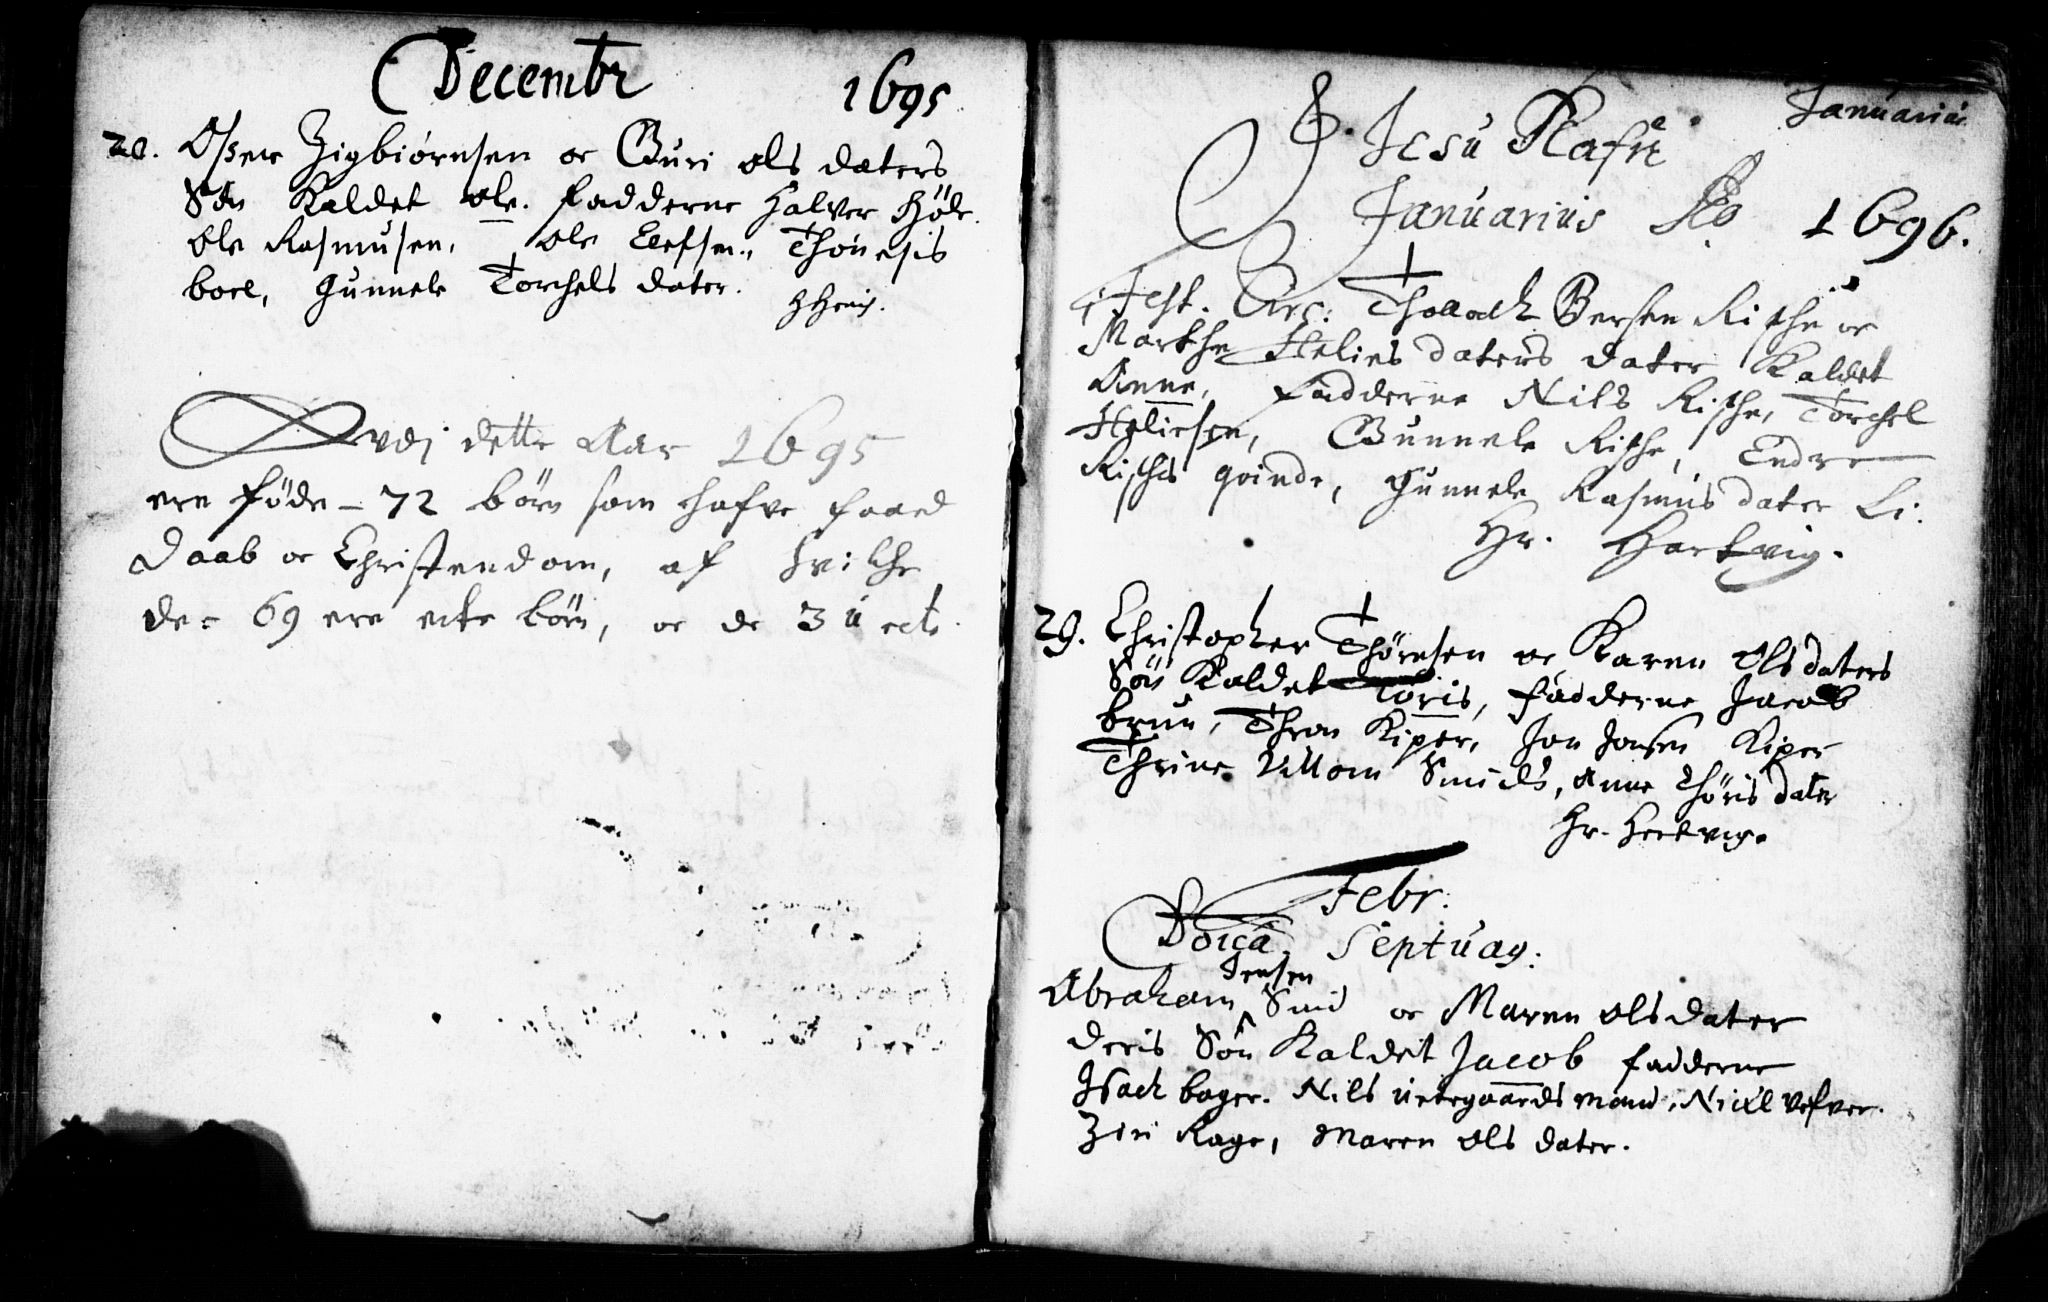 Decembr
1695
20. Osten Zigbiørnsen oc Guri ols daters
Søn Kaldet ole. fadderne Halvor Høle.
Ole Rasmusen, Ole Elefsen,
boel, Gunnele Torchels dater.
Udj dette Aar 1695
ere føde - 72 børn som hafve faaed
Daab oc Christendom, af hvilche
der 69 ere ecte børn, oc de 3 u ecte.
Januarius
J. Jesu Nafn
Januarius Ao 1696.
Fest. Circ: Thollach Bersen Riske oc
Marthe Helies daters dater Kaldet
Anne, fadderne Nils Riske, Torchel
Heliesen, Gunnele Riske, Endre
Riskes qvinde, Gunnele Rasmus dater Li.
Hr. Hartvig.
29. Christopher Thøresen oc Karen Olsdaters
Søn Kaldet Toris, fadderne Jacob
brun, Thron Kiper, Jon Jonsen Kiper
Thrine Villom Smids, Anne Thøris dater
Hr. Hertvig.
Febr.
Doica Septuag:
Jensen
Abraham Smid oc Maren olsdater
deris Søn Kaldet Jacob fadderne
Isach bager. Nils uetegaards mand, Nickel vefver.
Ziri Rage, Maren Ols dater.